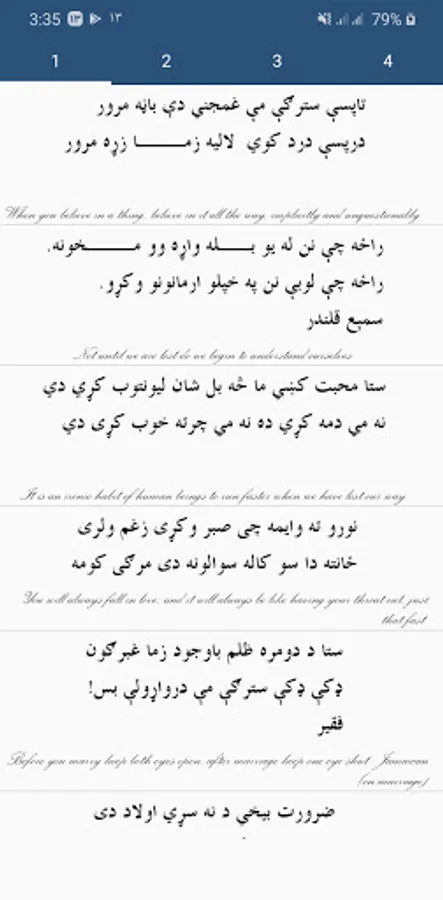 3:35 ١٣ 79%
1 2 3 4
تاپسې سترګې مې غمجنې دي باڼه مرور
درپسې درد کوي لاليه زمــــــا زړه مرور
When you believe in a thing, believe in it all the way, implicitly and unquestionably
راځه چې نن له يو بــــله واړه وو مــــــخونه.
راځه چې لوبې نن په خپلو ارمانونو وکړو.
سميع قلندر
Not until we are lost do we begin to understand ourselves
ستا محبت کښې ما څه بل شان ليونتوب کړي دي
نه مې دمه کړي ده نه مې چرته خوب کړی دي
It is an ironic habit of human beings to run faster when we have lost our way
نورو ته وايمه چی صبر وکړی زغم ولری
ځانته دا سو کاله سوالونه دی مرګی کومه
You will always fall in love, and it will always be like having your throat cut, just
that fast
ستا د دومره ظلم باوجود زما غبرګون
ډکې ډکې سترګې مې درواړولې بس!
فقير
Before you marry keep both eyes open, after marriage keep one eye shut. Jamaican
(on marriage)
ضرورت بيخي د نه سړي اولاد دی